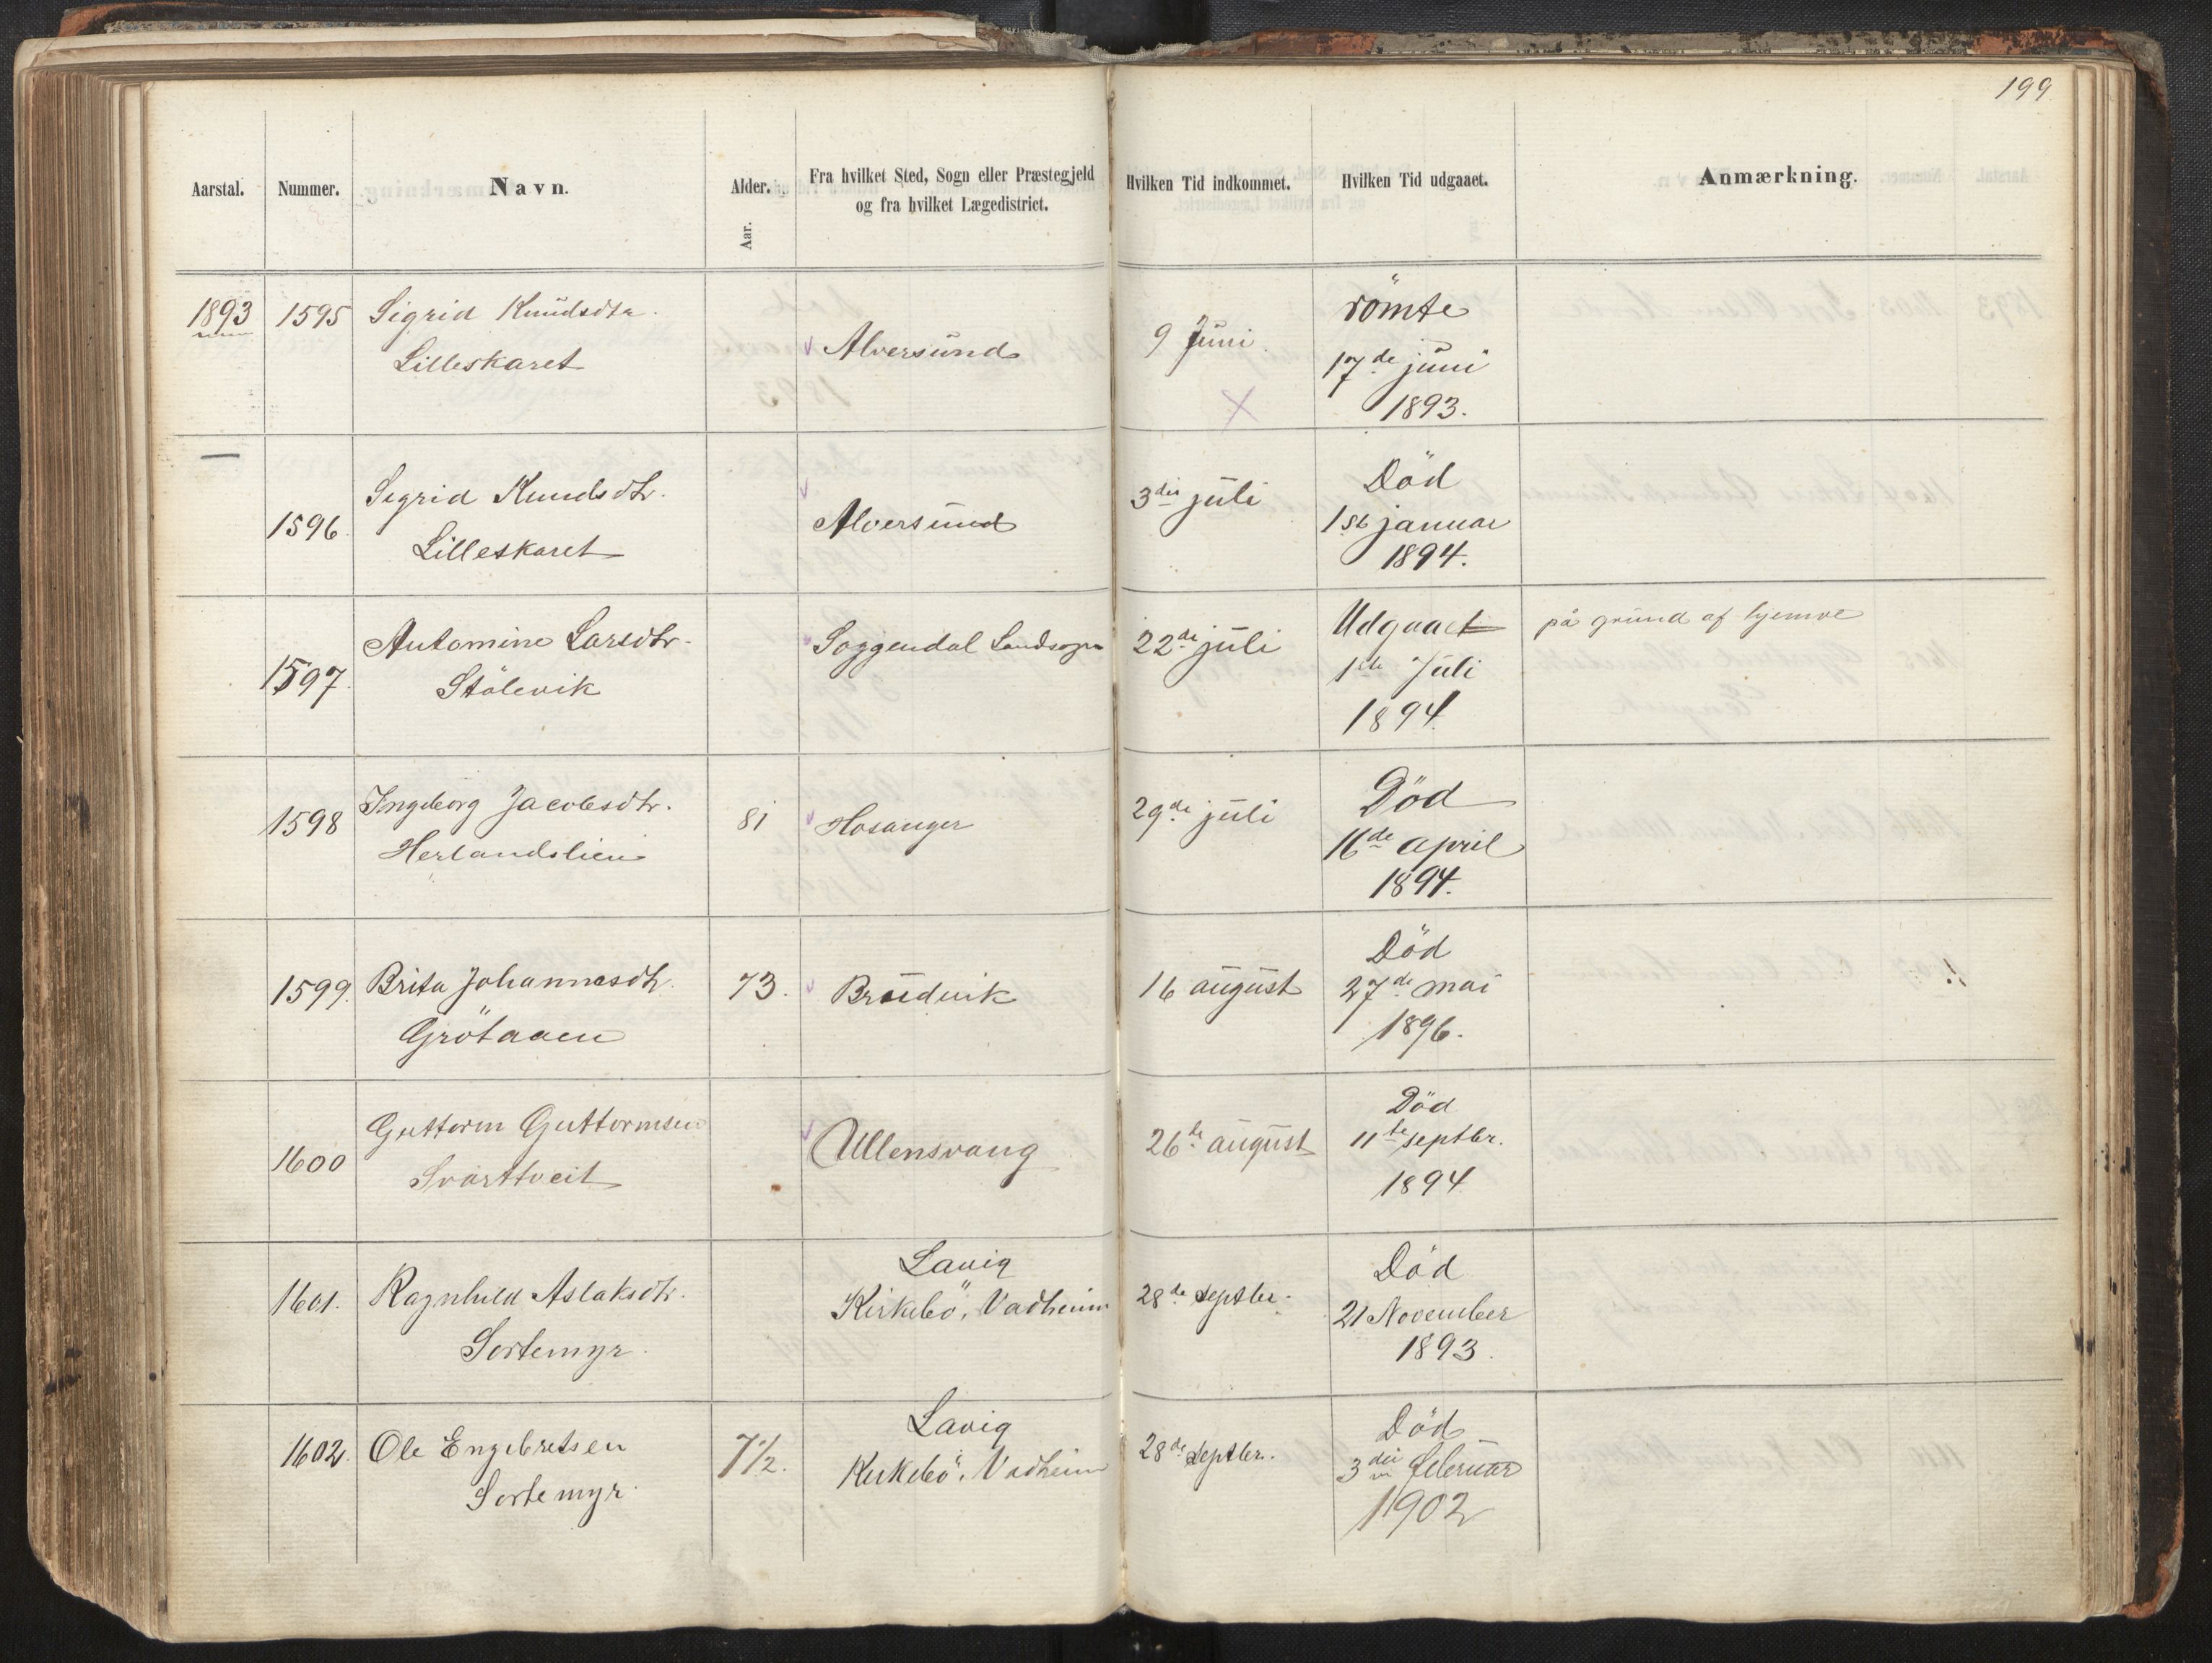 199
Aarstal. Nummer. Navn. Alder. Fra hvilket Sted, Sogn eller Præstegjeld Hvilken Tid indkommet. Hvilken Tid udgaaet. Anmærkning.
Aar. og fra hvilket Lægedistrict.
1893 1595 Sigrid Knudsdtr. Alversund 9 Juni römte
Lilleskaret 17de juni
1893.
— 1596 Sigrid Knudsdtr. Alversund 3die juli Död
Lilleskaret 1st januar
1894.
1597 Antomine Larsdtr. Soggendal Landsogn 22de juli Udgaaet på grund af hjemve
Stölevik 1ste Juli
1894.
1598 Ingeborg Jacobsdtr. 81 Hosanger 29de juli Död
Herlandslien 16de april
1894.
1599. Brita Johannesdtr. 73. Brudvik 16 august Död
Grötaaen 27de mai
1896.
1600 Guttorm Guttormsen Ullensvang 26de august Död
Svarttveit 11te septbr.
1894
1601. Ragnhild Aslaksdtr. Lavig 28de septbr. Död
Sortemyr. Kirkebö, Vadheim 21 November
1893.
1602. Ole Engebretsen 7½. Lavig 28de septbr. Död
Sortemyr. Kirkebö, Vadheim 3die februar
1902